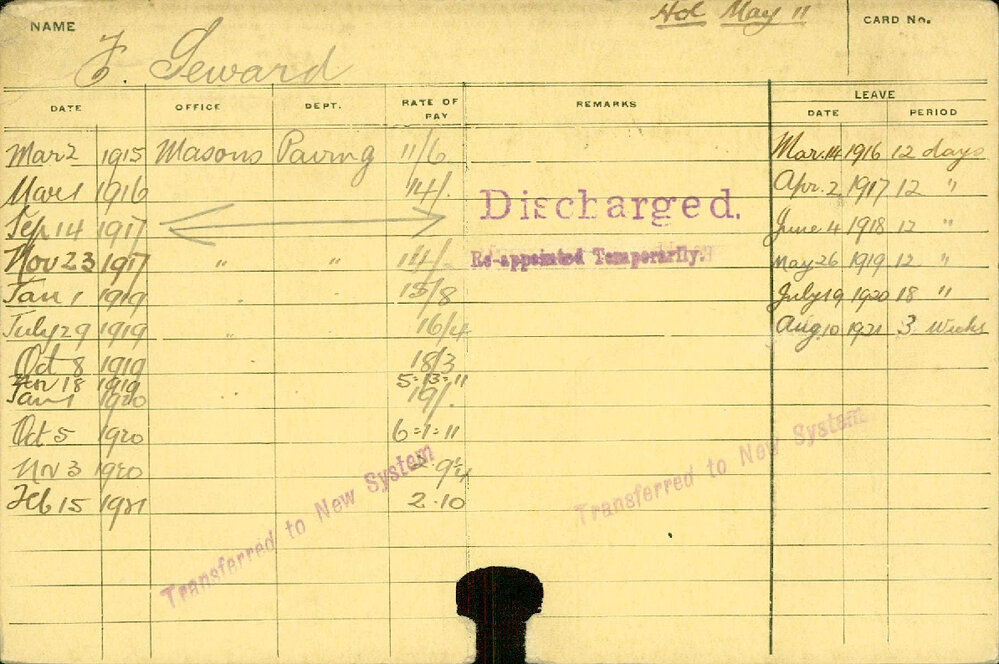 NAME
Hol May 11
CARD No.
F. Seward
LEAVE
DATE OFFICE DEPT. RATE OF PAY REMARKS DATE PERIOD
Mar 2 1915 Masons Paving 11/6 Mar. 14 1916 12 days
Mar 1 1916 14/. Apr. 2 1917 12 "
Discharged.
Sep 14 1917 June 4 1918 12 "
Nov 23 1917 " " 14/- Re-appointed Temporarily. May 26 1919 12 "
Jan 1 1919 15/8 July 19 1920 18 "
July 29 1919 " 16/4 Aug 10 1921 3 Weeks
Oct 8 1919 18/3
Nov 18 1919 5=13=11
Jan 1 1920 19/.
Oct 5 1920 6=1=11
Nov 3 1920 2 9¼
Feb 15 1921 2.10
Transferred to New System
Transferred to New System